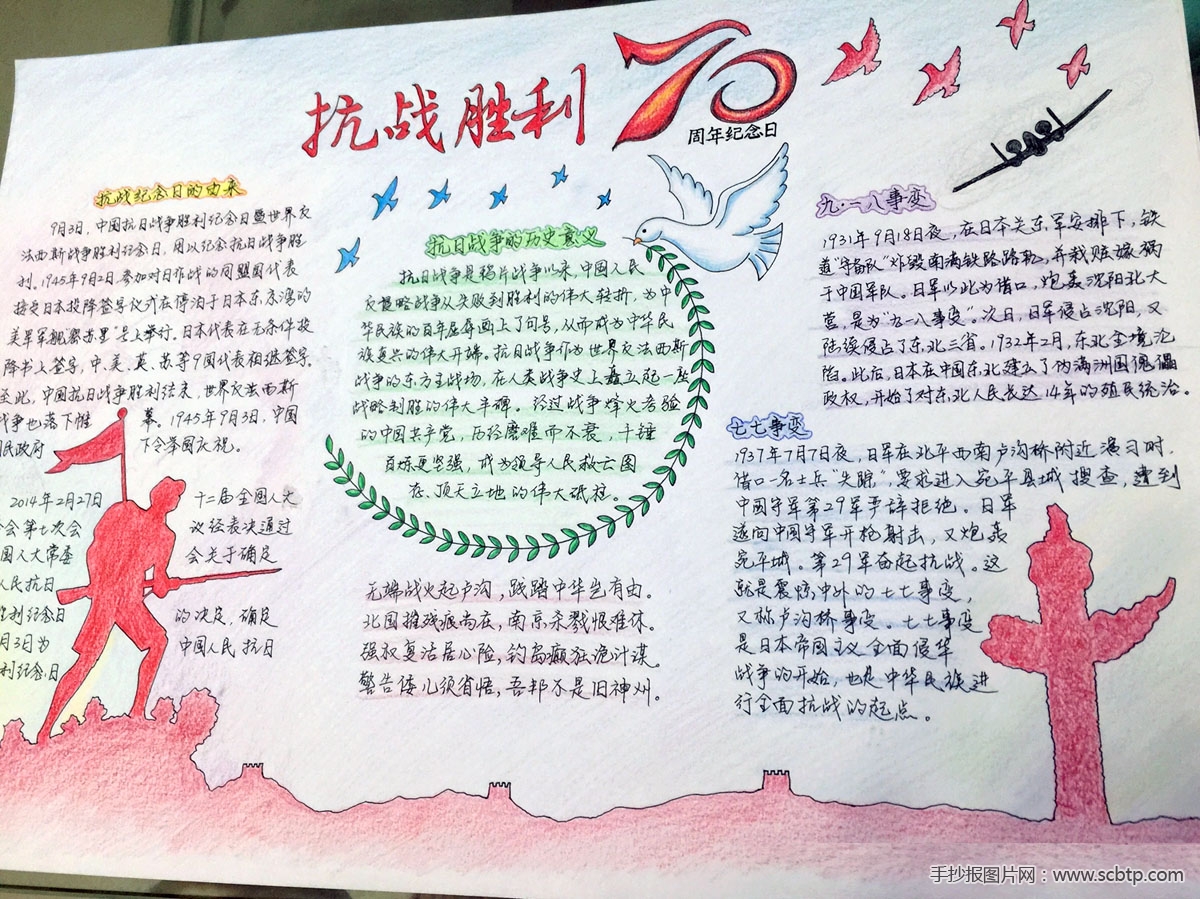 抗战胜利70
周年纪念日
抗战纪念日的由来
9月3日,中国抗日战争胜利纪念日暨世界反
法西斯战争胜利纪念日,用以纪念抗日战争胜
利。1945年9月2日参加对日作战的同盟国代表
接受日本投降签字仪式在停泊于日本东京湾的
美军军舰“密苏里”号上举行。日本代表在无条件投
降书上签字,中、美、英、苏等9国代表相继签字。
至此,中国抗日战争胜利结束,世界反法西斯
战争也落下帷 幕。1945年9月3日,中国
国民政府 下令举国庆祝。
2014年2月27日 十二届全国人大
会第七次会 议经表决通过
国人大常委 会关于确定
人民抗日
胜利纪念日 的决定,确定
月3日为 中国人民抗日
利纪念日
抗日战争的历史意义
抗日战争是鸦片战争以来,中国人民
反侵略战争从失败到胜利的伟大转折,为中
华民族的百年屈辱画上了句号,从而成为中华民
族复兴的伟大开端。抗日战争作为世界反法西斯
战争的东方主战场,在人类战争史上矗立起一座
战略制胜的伟大丰碑。经过战争烽火考验
的中国共产党,历经磨难而不衰,千锤
百炼更坚强,成为领导人民救亡图
存、顶天立地的伟大砥柱。
无端战火起卢沟,践踏中华岂有由。
北国摧残痕尚在,南京杀戮恨难休。
强权复活居心险,钓岛癫狂诡计谋。
警告倭儿须省悟,吾邦不是旧神州。
九·一八事变
1931年9月18日夜,在日本关东军安排下,铁
道“守备队”炸毁南满铁路路轨,并栽赃嫁祸
于中国军队。日军以此为借口,炮轰沈阳北大
营,是为“九一八事变”。次日,日军侵占沈阳,又
陆续侵占了东北三省。1932年2月,东北全境沦
陷。此后,日本在中国东北建立了伪满洲国傀儡
政权,开始了对东北人民长达14年的殖民统治。
七七事变
1937年7月7日夜,日军在北平西南卢沟桥附近演习时,
借口一名士兵“失踪”,要求进入宛平县城搜查,遭到
中国守军第29军严辞拒绝。日军
遂向中国守军开枪射击,又炮轰
宛平城。第29军奋起抗战。这
就是震惊中外的七七事变,
又称卢沟桥事变。七七事变
是日本帝国主义全面侵华
战争的开始,也是中华民族进
行全面抗战的起点。
手抄报图片网:www.scbtp.com